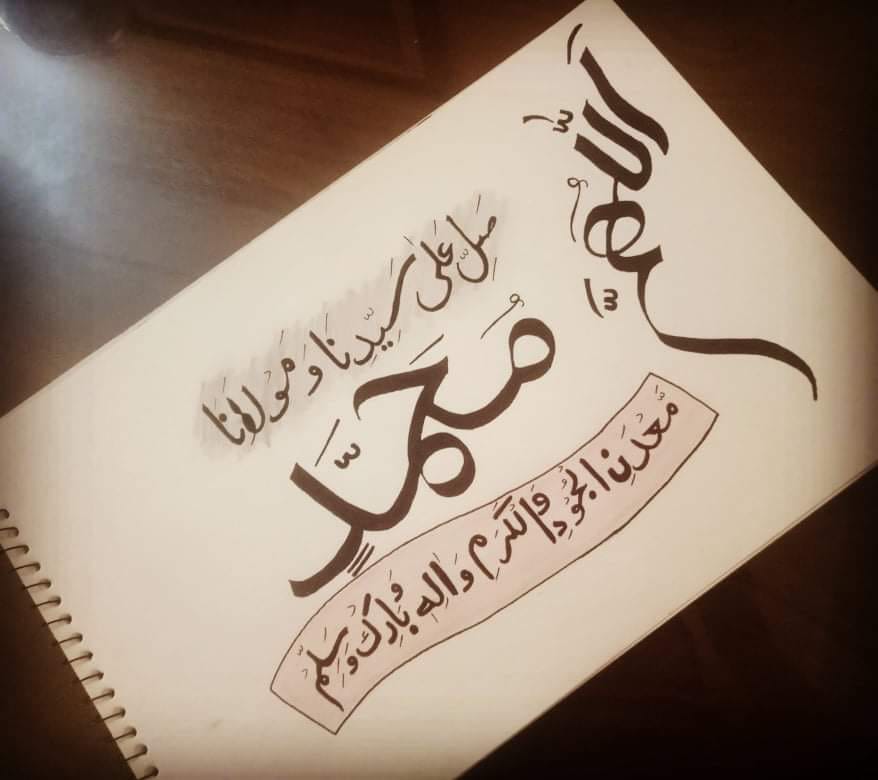 اَللّٰهُمَّ
صَلِّ عَلٰی سَيِّدِنَا وَ مَوْلَانَا
مُحَمَّدٍ
مَّعْدَنِ الْجُوْدِ وَالْكَرَمِ وَاٰلِهٖ وَبَارِكْ وَسَلِّمْ